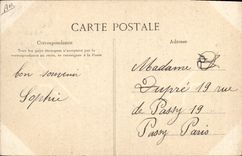 CARTE POSTALE
Correspondance
Tous les pays étrangers n'acceptent pas la
correspondance au recto, se renseigner à la Poste
Adresse
bon souvenir
Sophie
Madame
Dupré 19 rue
de Passy 19
Passy Paris